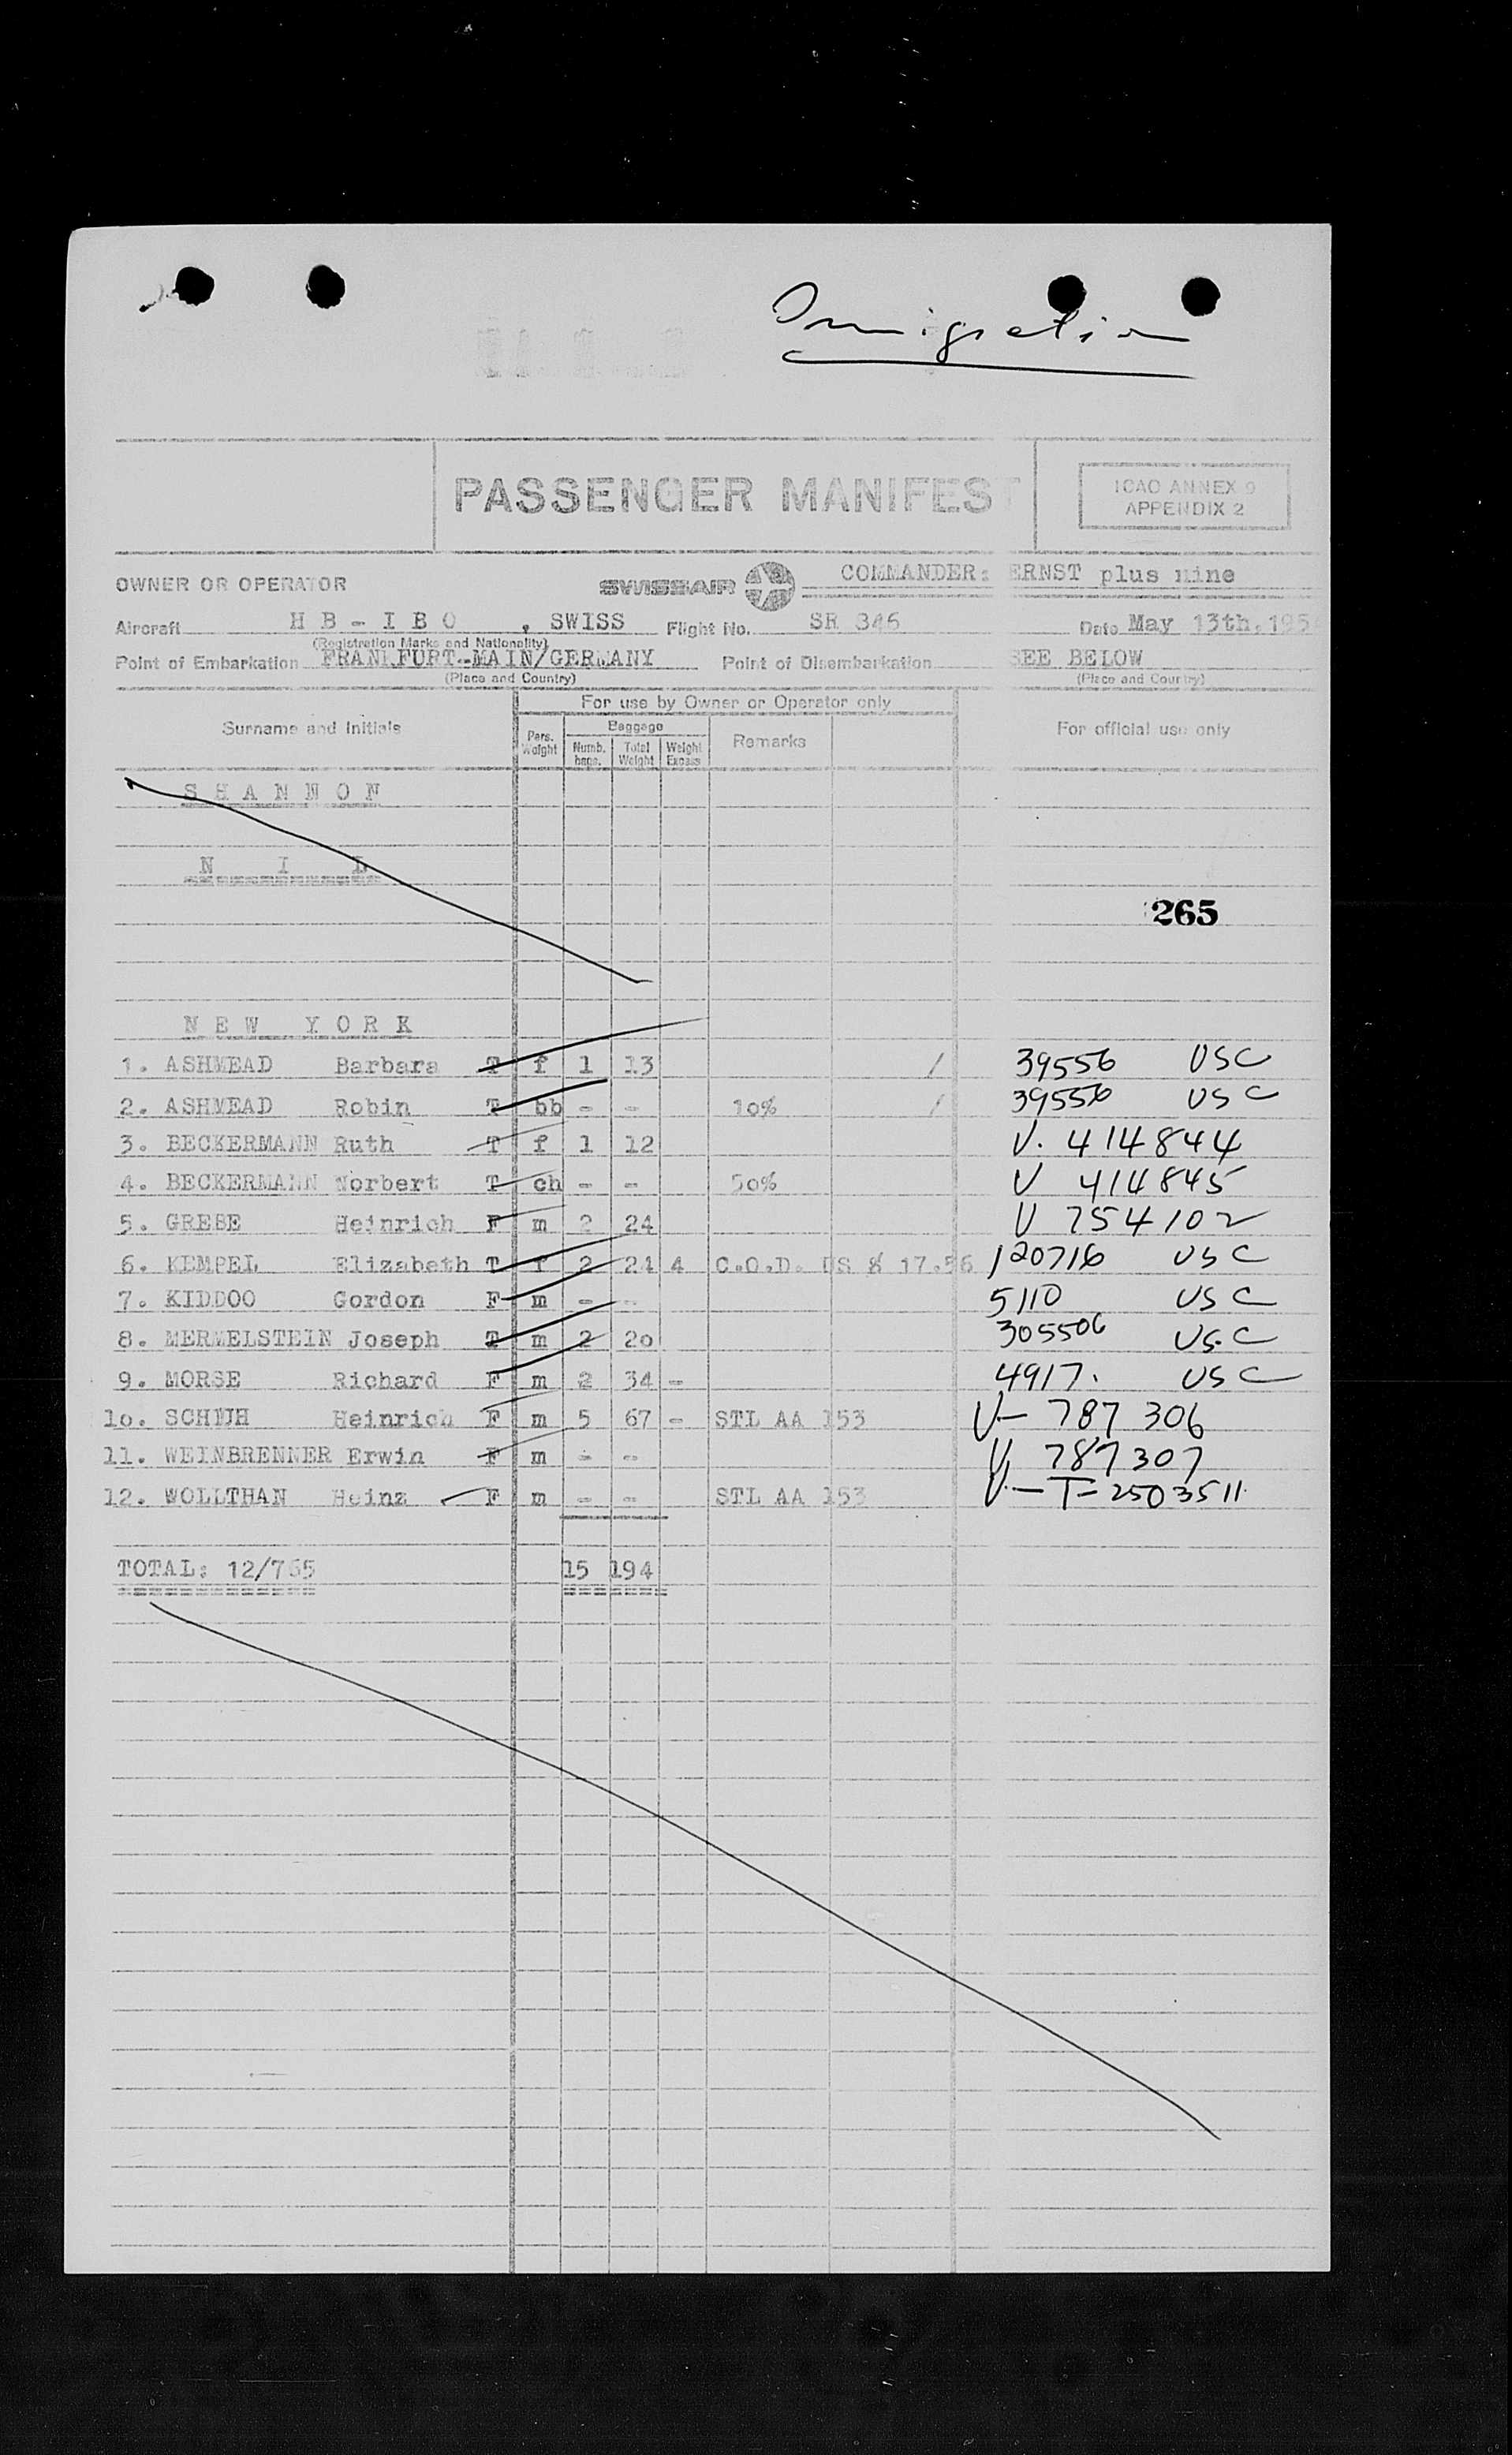 Immigration
PASSENGER MANIFEST
ICAO ANNEX 9
APPENDIX 2
OWNER OR OPERATOR SWISSAIR COMMANDER: ERNST plus nine
Aircraft H B - I B O , SWISS Flight No. SR 346 Date May 13th, 195
(Registration Marks and Nationality)
Point of Embarkation FRANKFURT-MAIN/GERMANY Point of Disembarkation SEE BELOW
(Place and Country) (Place and Country)
For use by Owner or Operator only
Surname and Initials Pers. Weight Baggage Numb. bags. Total Weight Weight Excess Remarks For official use only
S H A N N O N
N I L
265
N E W Y O R K
1. ASHMEAD Barbara T f 1 13 / 39556 USC
2. ASHMEAD Robin T bb - - 10% / 39556 USC
3. BECKERMANN Ruth T f 1 12 V. 414844
4. BECKERMANN Norbert T ch - - 50% V 414845
5. GREBE Heinrich F m 2 24 V 754102
6. KEMPEL Elizabeth T f 2 24 4 C.O.D. US $ 17.56 120716 USC
7. KIDDOO Gordon F m - - 5110 USC
8. MERMELSTEIN Joseph T m 2 20 305506 USC
9. MORSE Richard F m 2 34 - 4917. USC
10. SCHUH Heinrich F m 5 67 - STL AA 153 V- 787 306
11. WEINBRENNER Erwin F m - - V 787307
12. WOLLTHAN Heinz F m - - STL AA 153 V.- T- 2503511
TOTAL: 12/765 15 194